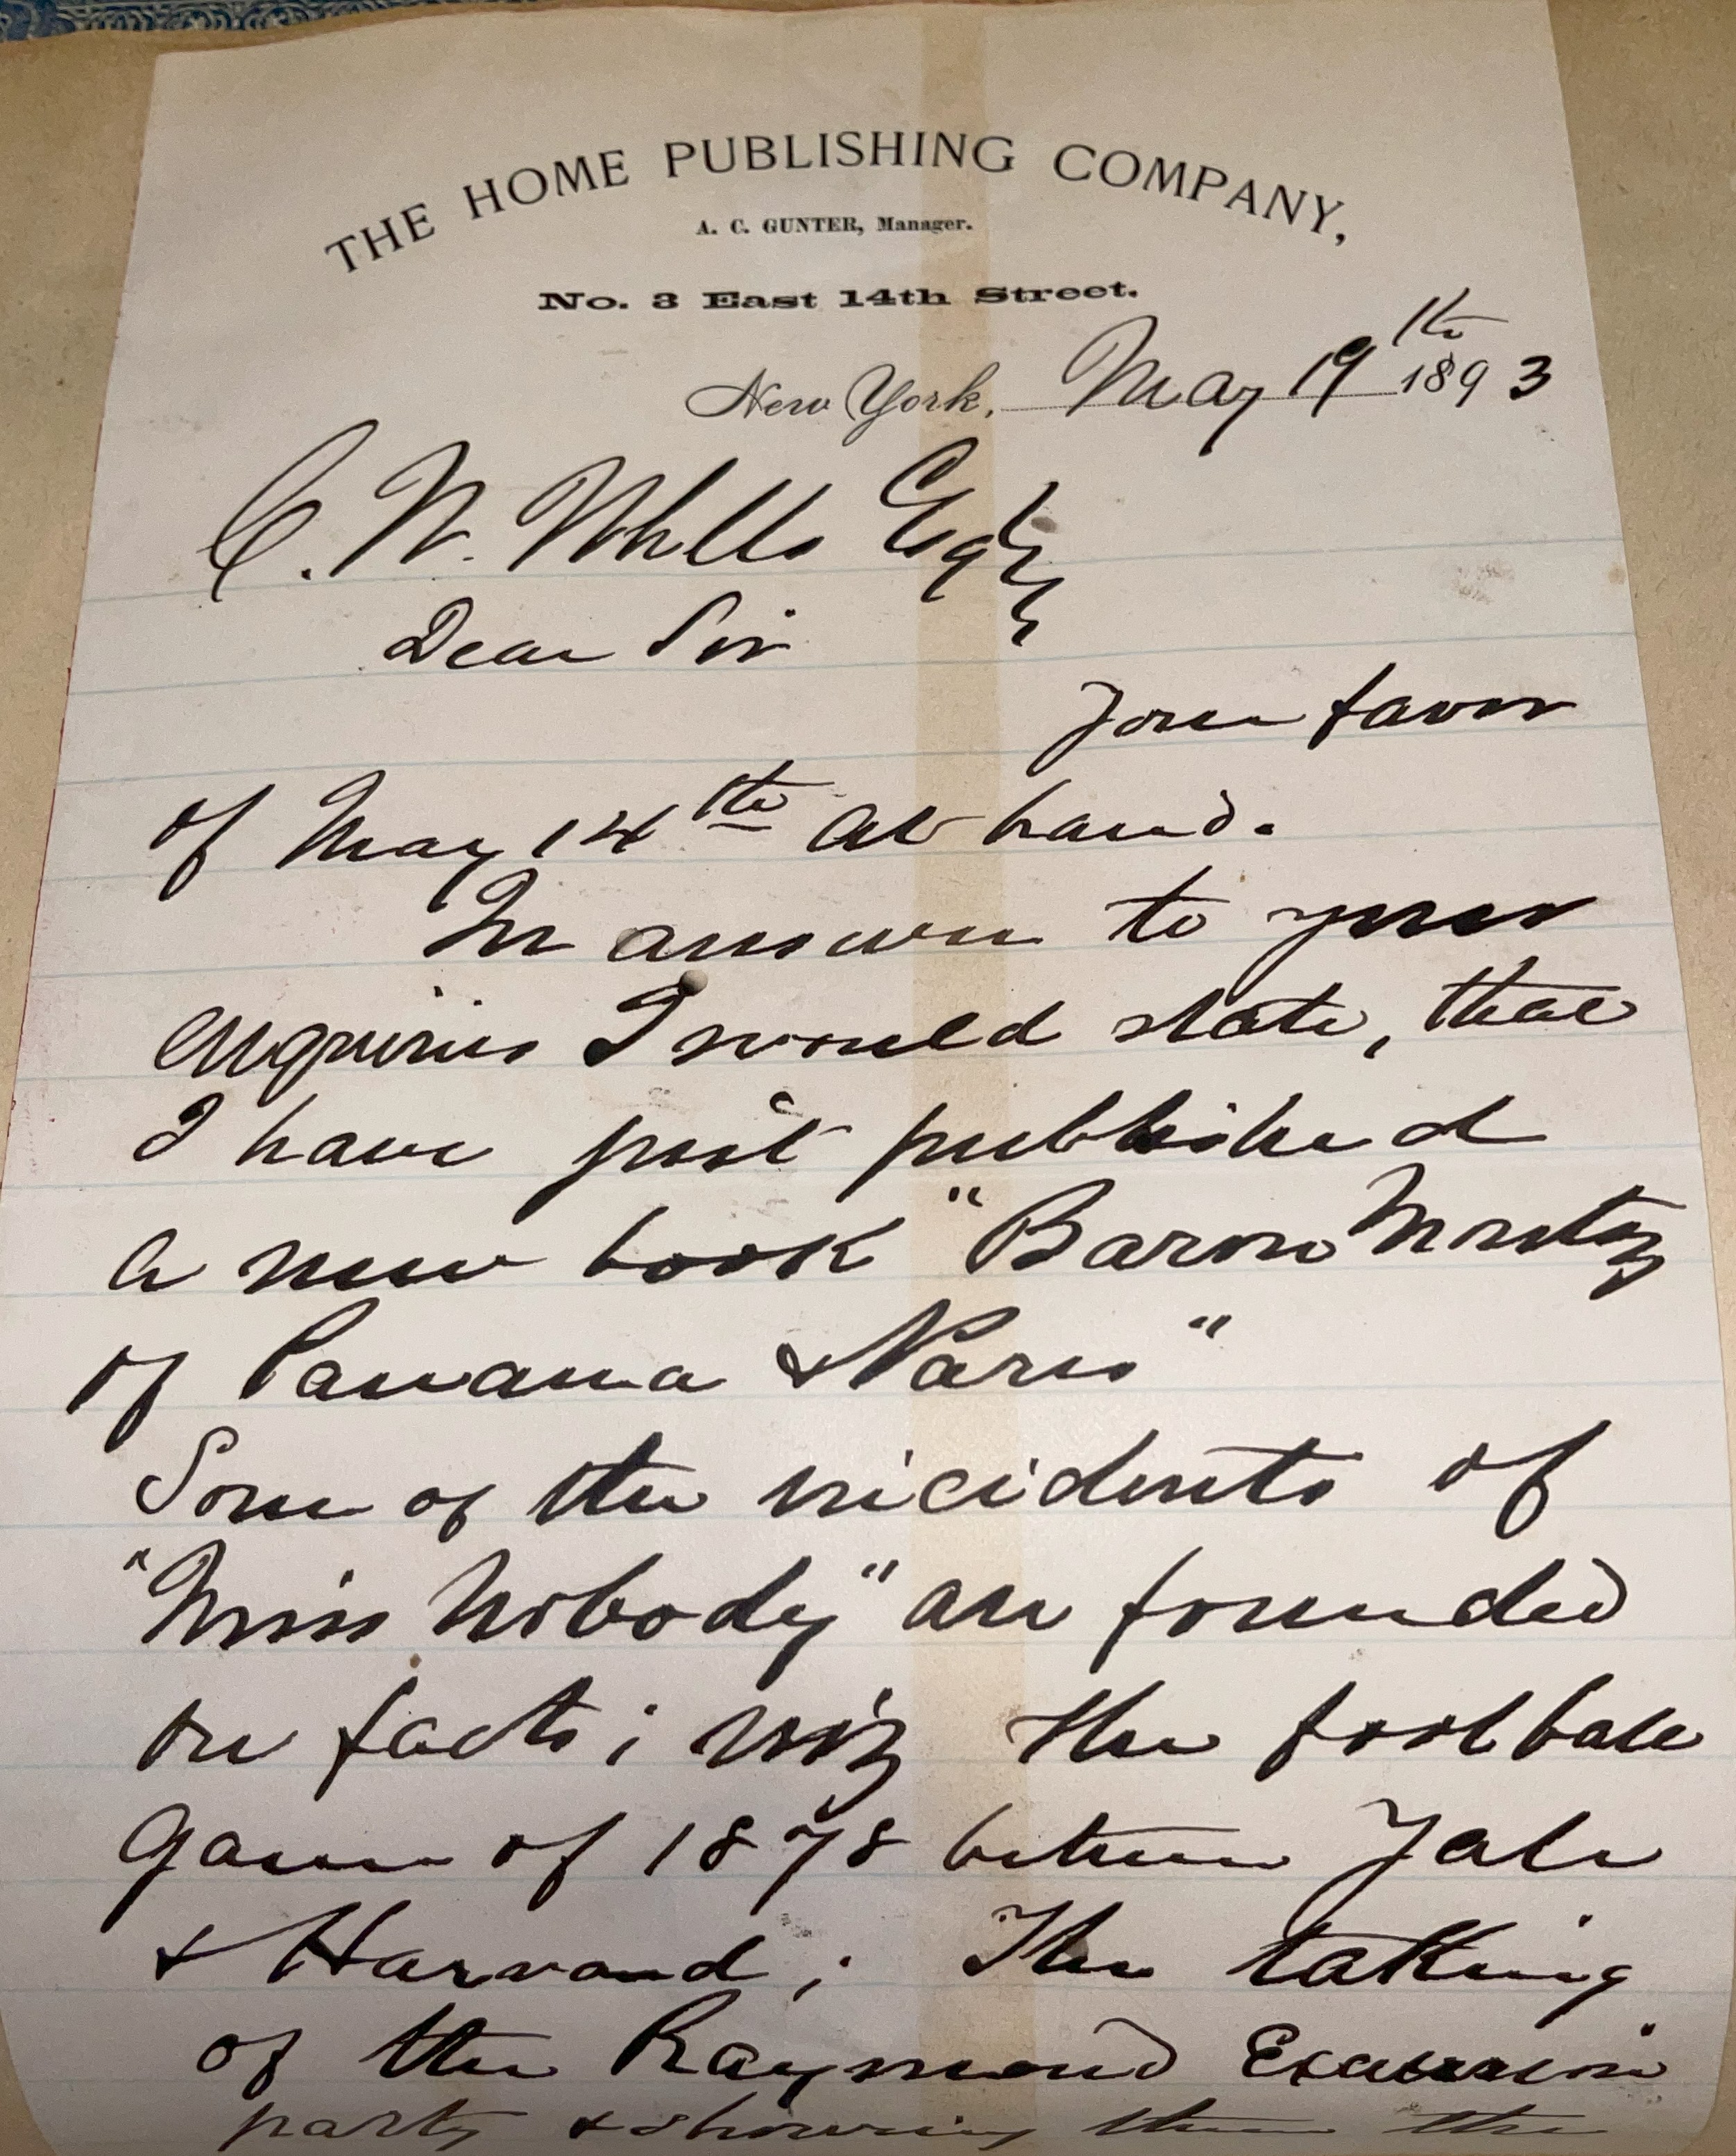 THE HOME PUBLISHING COMPANY,
A. C. GUNTER, Manager.
No. 3 East 14th Street.
New York, May 19th 1893
C. W. Esq
Dear Sir
Your favor
of May 14th at hand.
In answer to your
enquiries I would state, that
I have just published
a new book "Baron Montez
of Panama & Paris"
Some of the incidents of
"Miss Nobody" are founded
on facts; viz the foot ball
Game of 1878 between Yale
& Harvard; The taking
of the Raymond Excursion
party & showing them the